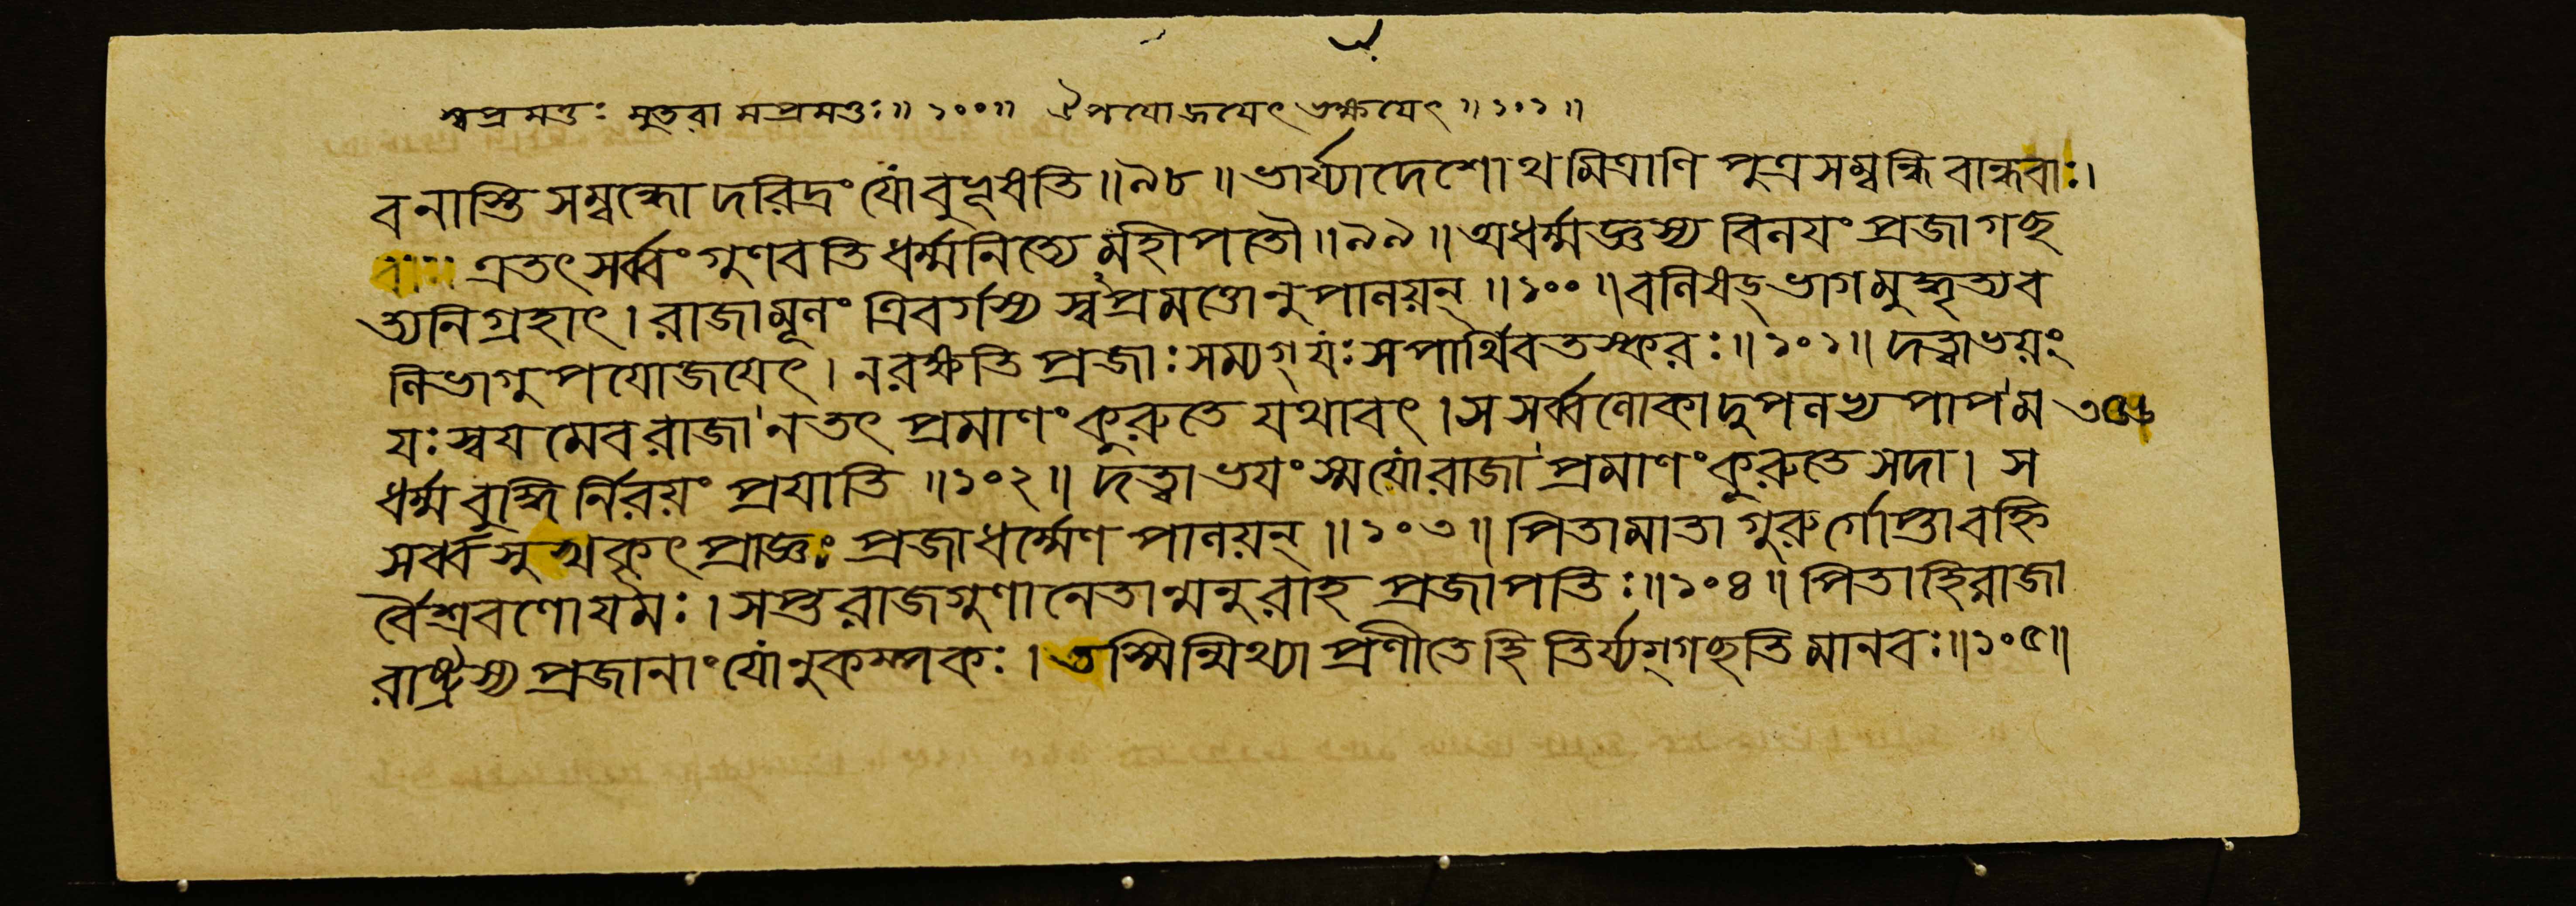 স্বপ্রমত্তঃ সুতরামপ্রমত্তঃ॥ ১০০॥ ঐপযোজযেৎ ভক্ষযেৎ॥ ১০১॥
বনাস্তি সম্বন্ধো দরিদ্রং যোবুভূষতি॥৯৮॥ ভার্য্যাদেশোথ মিত্রাণি পুত্রসম্বন্ধিবান্ধবাঃ।
এতৎ সর্ব্বং গুণবতি ধর্ম্মনিত্যে মহীপতৌ॥৯৯॥ অধর্ম্মজ্ঞস্য বিনযং প্রজাগছ
ন্ত্যনিগ্রহাৎ। রাজামূলং ত্রিবর্গস্য স্বপ্রমত্তোনুপালয়ন্॥১০০॥ বলিষড্ভাগমুদ্ধৃত্যব
লিভাগুপযোজযেৎ। নরক্ষতি প্রজাঃ সম্যগ্ যঃ সপার্থিবতস্করঃ॥১০১॥ দত্ত্বাভয়ং
যঃ স্বযমেবরাজা নতৎ প্রমাণং কুরুতে যথাবৎ। স সর্ব্বলোকাদুপলভ্য পাপম
ধর্ম্মবুদ্ধির্নিরয়ং প্রযাতি॥১০২॥ দত্ত্বাভযং স্মযোরাজা প্রমাণং কুরুতে সদা। স
সর্ব্বসুখকৃৎ প্রাজ্ঞঃ প্রজাধর্ম্মেণ পালয়ন্॥১০৩॥ পিতামাতা গুরুর্গোপ্তাবহ্নি
র্বৈশ্রবণোযমঃ। সপ্তরাজগুণানেতান্মনুরাহ প্রজাপতিঃ॥১০৪॥ পিতাহিরাজা
রাষ্ট্রস্য প্রজানাং যোনুকম্পকঃ। তস্মিন্মিথ্যা প্রণীতেহি তির্য্যগ্গছতি মানবঃ॥১০৫॥